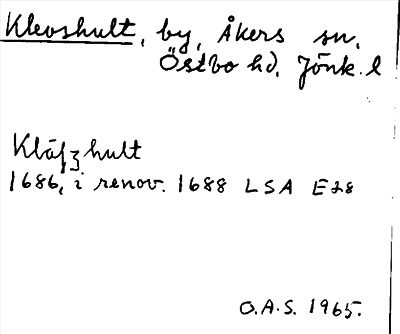 Klevshult, by, Åkers sn,
Östbo hd, Jönk. l
Kläfzhult
1686, i renov. 1688 LSA E28
O.A.S. 1965.